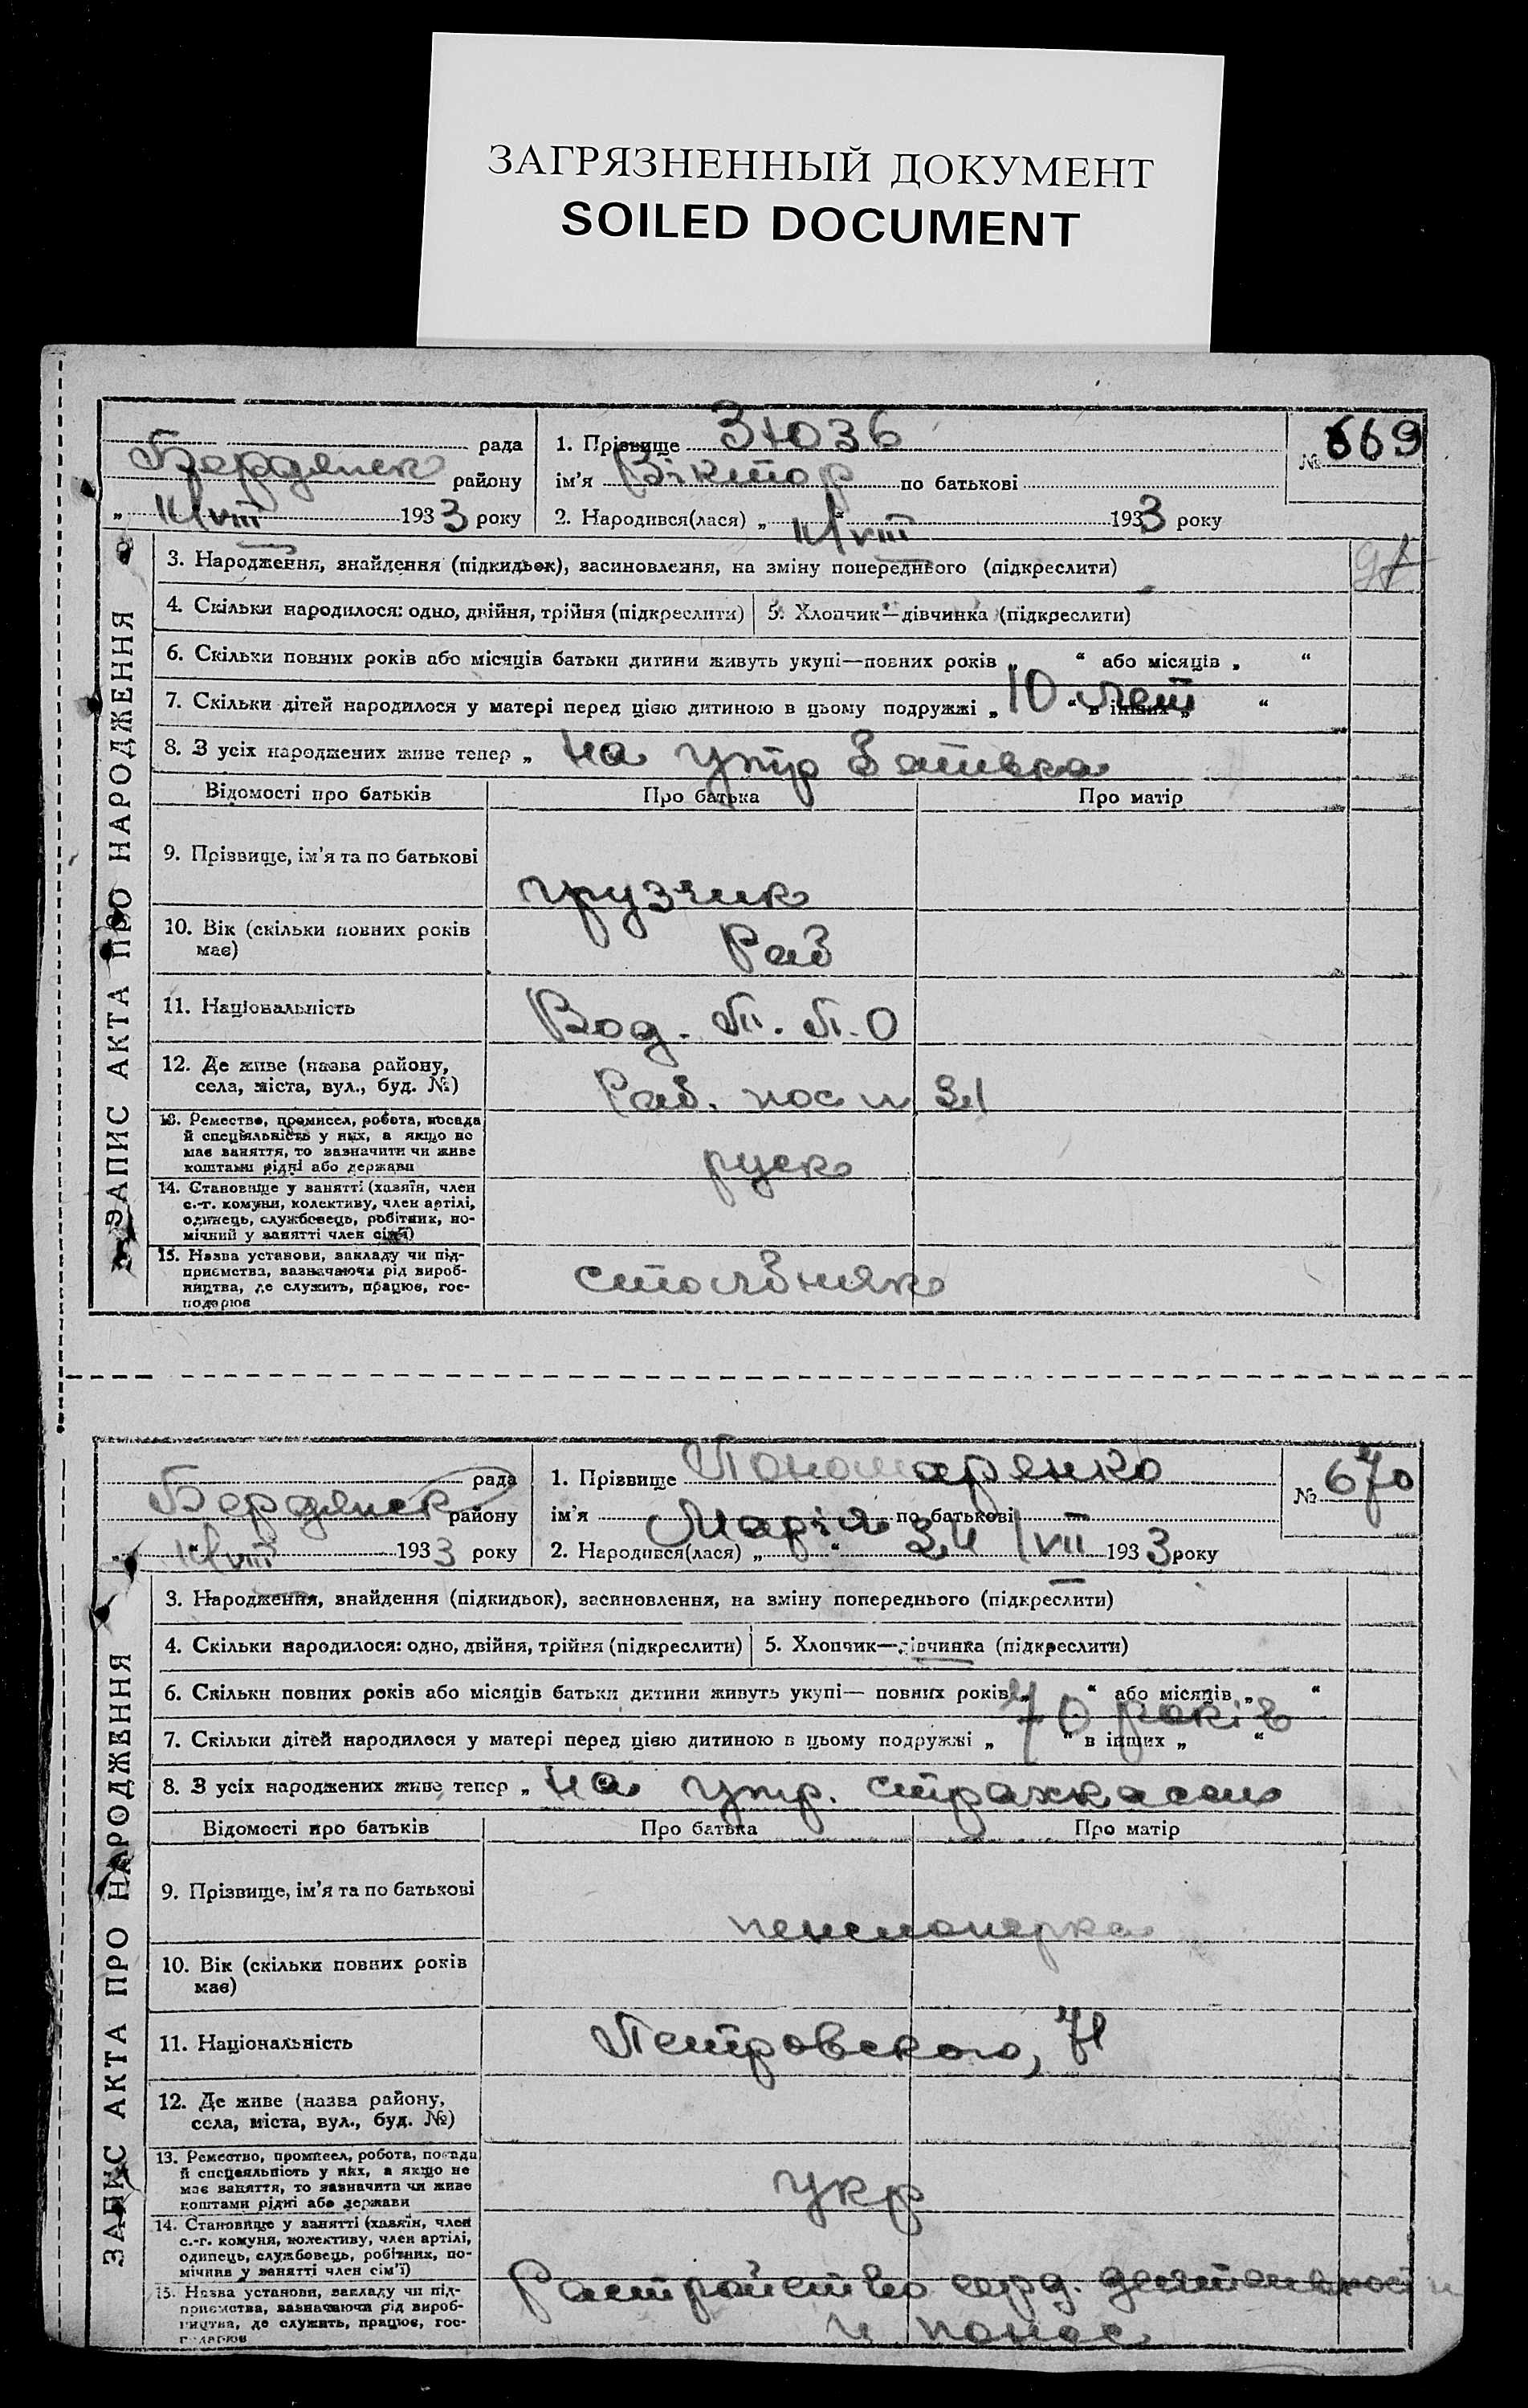 ЗАГРЯЗНЕННЫЙ ДОКУМЕНТ
SOILED DOCUMENT
ЗАПИС АКТА ПРО НАРОДЖЕННЯ
рада
Бердянск
району
„ 11/VIII 1933 року
1. Прізвище Зюзь
ім'я Віктор по батькові
2. Народився(лася) „ “ 11/VIII 1933 року
№ 669
3. Народження, знайдення (підкидьок), засиновлення, на зміну попереднього (підкреслити)
4. Скільки народилося: одно, двійня, трійня (підкреслити)
5. Хлопчик—дівчинка (підкреслити)
6. Скільки повних років або місяців батьки дитини живуть укупі—повних років „ “ або місяців „ “
7. Скільки дітей народилося у матері перед цією дитиною в цьому подружжі „ “ в інших „ “
10 лет
8. З усіх народжених живе тепер „ на упр батька
Відомості про батьків
Про батька
Про матір
9. Прізвище, ім'я та по батькові
грузчик
10. Вік (скільки повних років
має)
Раб
11. Національність
Вод. П. П. О
12. Де живе (назва району,
села, міста, вул., буд. №)
Раб. пос
13. Ремество, промисел, робота, посада
й спеціяльність у них, а якщо не
має заняття, то зазначити чи живе
коштами рідні або держави
руск
14. Становище у занятті (хазяїн, член
с.-г. комуни, колективу, член артілі,
одинець, службовець, робітник, по-
мічний у занятті член сім'ї)
15. Назва установи, закладу чи під-
приємства, зазначаючи рід вироб-
ництва, де служить, працює, гос-
подарює
столбняк
ЗАПИС АКТА ПРО НАРОДЖЕННЯ
рада
Бердянск
району
„ “ 11/VIII 1933 року
1. Прізвище Пономаренко
ім'я Марія по батькові
2. Народився(лася) „ “ /VII 1933 року
№ 670
3. Народження, знайдення (підкидьок), засиновлення, на зміну попереднього (підкреслити)
4. Скільки народилося: одно, двійня, трійня (підкреслити)
5. Хлопчик—дівчинка (підкреслити)
6. Скільки повних років або місяців батьки дитини живуть укупі— повних років „ “ або місяців „ “
70 років
7. Скільки дітей народилося у матері перед цією дитиною в цьому подружжі „ “ в інших „ “
8. З усіх народжених живе тепер „ на упр. страхкаси
Відомості про батьків
Про батька
Про матір
9. Прізвище, ім'я та по батькові
пенсионерка
10. Вік (скільки повних років
має)
11. Національність
Петровского, 71
12. Де живе (назва району,
села, міста, вул., буд. №)
13. Ремество, промисел, робота, посада
й спеціяльність у них, а якщо не
має заняття, то зазначити чи живе
коштами рідні або держави
укр
14. Становище у занятті (хазяїн, член
с.-г. комуни, колективу, член артілі,
одинець, службовець, робітник, по-
мічник у занятті член сім'ї)
Растройство серд. деятельности
15. Назва установи, закладу чи під-
приємства, зазначаючи рід вироб-
ництва, де служить, працює, гос-
подарює
и понос